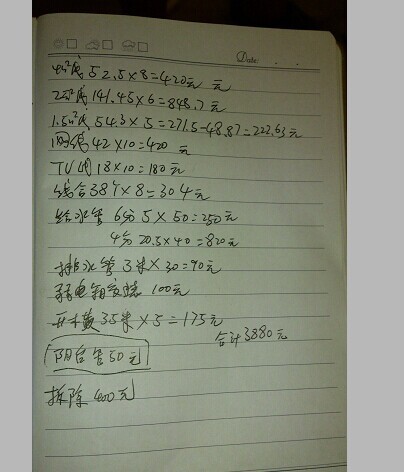 Date
4m²线 52.5×8=420元 元
2m²线 141.45×6=848.7元
1.5m²线 54.3×5=271.5-48.87=222.63元
网线 42×10=420元
TV线 18×10=180元
线合 38个×8=304元
给水管 6分 5×50=250元
4分 20.5×40=820元
排水管 3米×30=90元
弱电箱安装 100元
开槽 35米×5=175元
合计3880元
阳台管50元
拆除400元